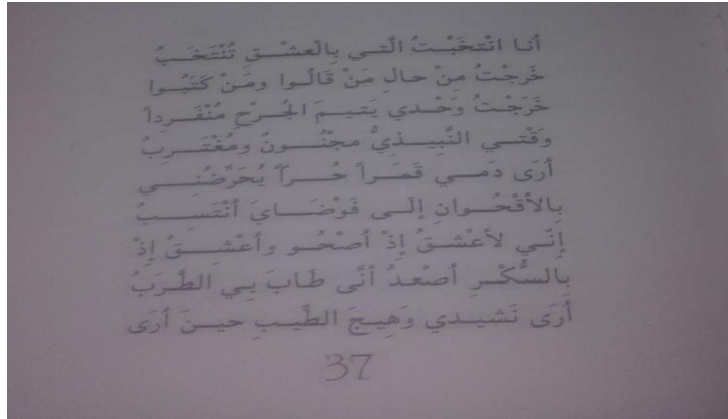 أنا انْتخَبْتُ الّتي بِالْعشْقِ تُنْتَخَبُ
خَرجْتُ مِنْ حالِ مَنْ قَالُوا ومَنْ كَتَبُوا
خَرَجْتُ وَحْدي يَتيمَ الجُرْحِ مُنْفَرِداً
وَقْتي النَّبِيذِيُّ مجْنُونٌ ومُغْتَرِبُ
أرَى دَمي قَمَراً حُراً يُحَرَّضُني
بِالأقْحُوانِ إلَى فَوْضَايَ أنْتَسِبُ
إنّي لأعْشقُ إذْ أصْحُو وأعْشِقُ إذْ
بالسُّكْرِ أصْعدُ أنَّى طَابَ بِي الطَّرَبُ
أرَى نَشيدي وَهِيجَ الطّيبِ حينَ أرَى
37